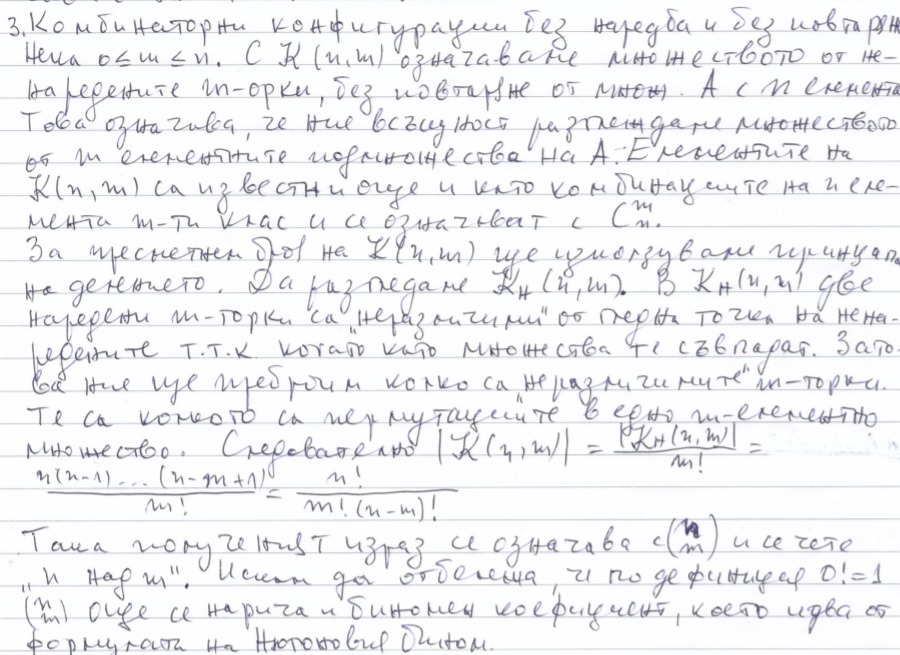 3. Комбинаторни конфигурации без наредба и без повтаряне
Нека 0≤m≤n. С K(n,m) означаваме множеството от не-
наредените m-орки, без повтаряне от множ. A с n елемента
Това означава, че ние всъщност разглеждаме множеството
от m елементните подмножества на A. Елементите на
K(n,m) са известни още и като комбинациите на n еле-
мента m-ти клас и се означават с C_n^m.
За пресметнем броя на K(n,m) ще използуваме принципа
на делението. Да разгледаме K_H(n,m). В K_H(n,m) две
наредени m-торки са "неразличими" от гледна точка на нена-
редените т.т.к. когато като множества те съвпадат. Зато-
ва ние ще преброим колко са "неразличимите" m-торки.
Те са колкото са пермутациите в едно m-елементно
множество. Следователно |K(n,m)| = |K_H(n,m)| / m! =
n(n-1)...(n-m+1) / m! = n! / m!(n-m)!
Така полученият израз се означава с (n m) и се чете
"n над m". Искам да отбележа, че по дефиниция 0!=1
(n m) още се нарича и биномен коефициент, което идва от
формулата на Нютоновия бином.